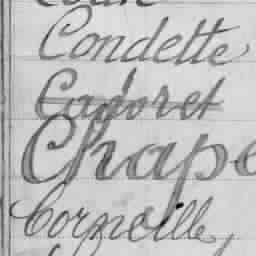 Condette
Cadoret
Chape
Corneille,